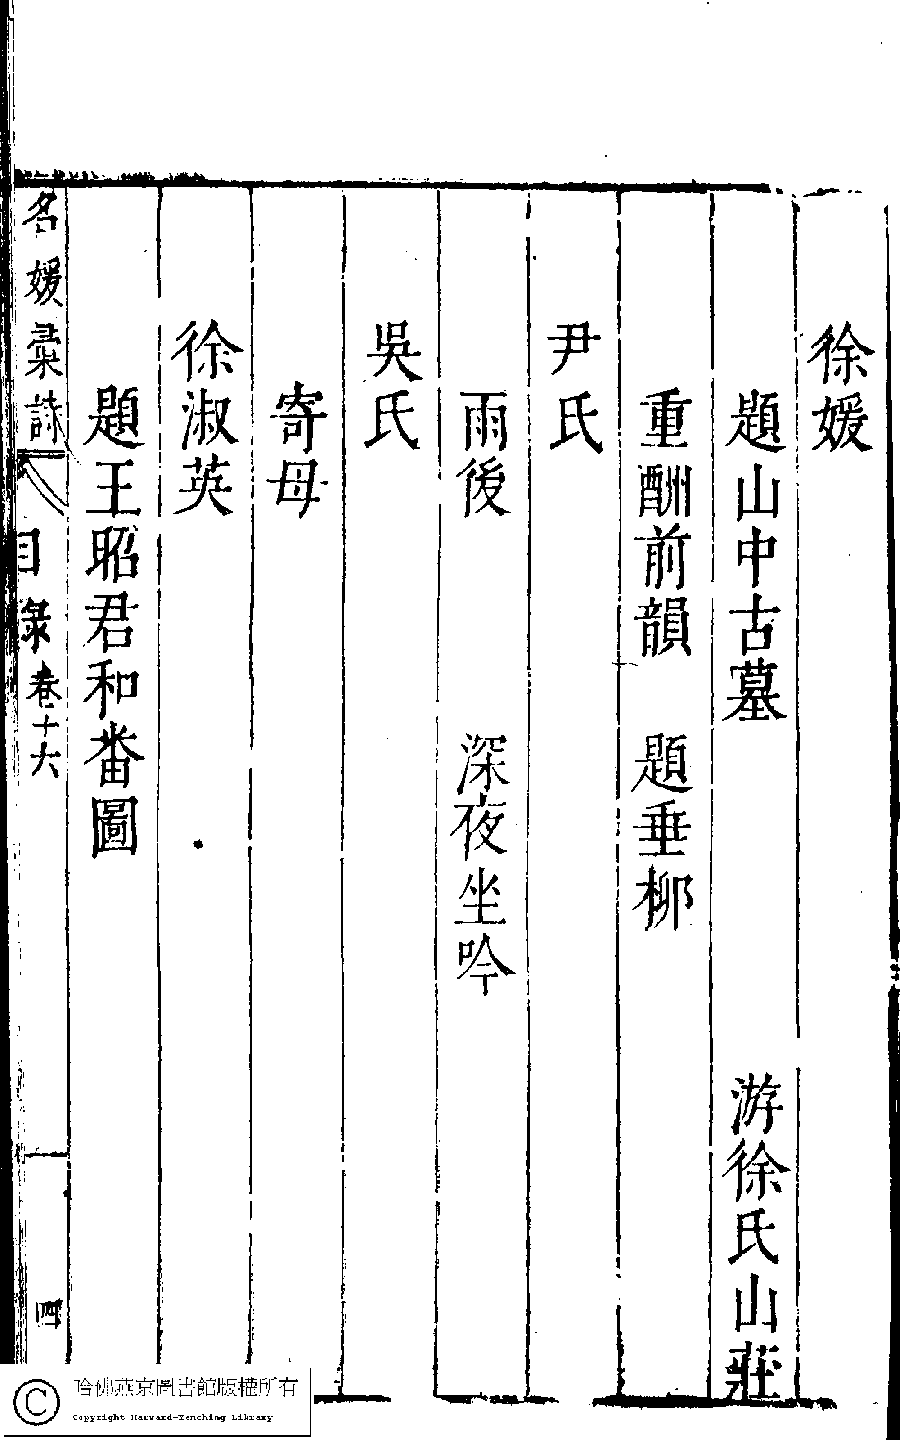 徐媛
題山中古墓 游徐氏山莊
重酬前韻 題垂柳
尹氏
雨後 深夜坐吟
吳氏
寄母
徐淑英
題王昭君和番圖
名媛彙詩 目錄卷十六 四
哈佛燕京圖書館版權所有
Copyright Harvard-Yenching Library